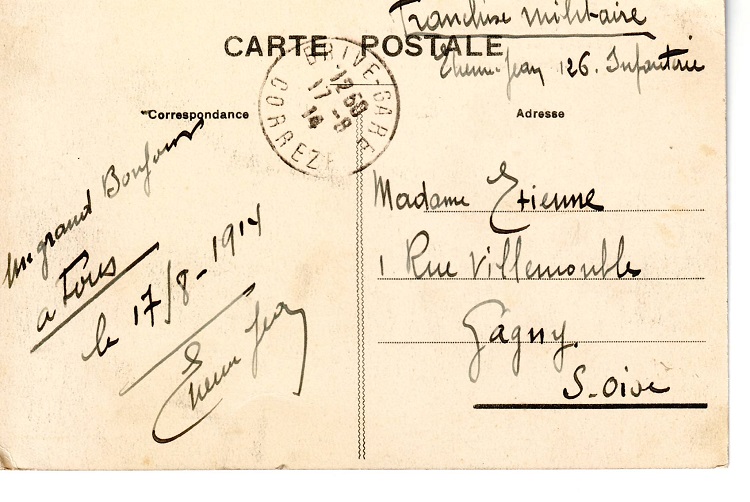 Franchise militaire
CARTE POSTALE
Etienne Jean 126. Infanterie
BRIVE-GARE
12 50
17 -8
14
CORREZE
Correspondance
Adresse
Un grand Bonjour
a Tous
le 17/8-1914
Etienne Jean
Madame Etienne
1 Rue Villemomble
Gagny.
S-Oise